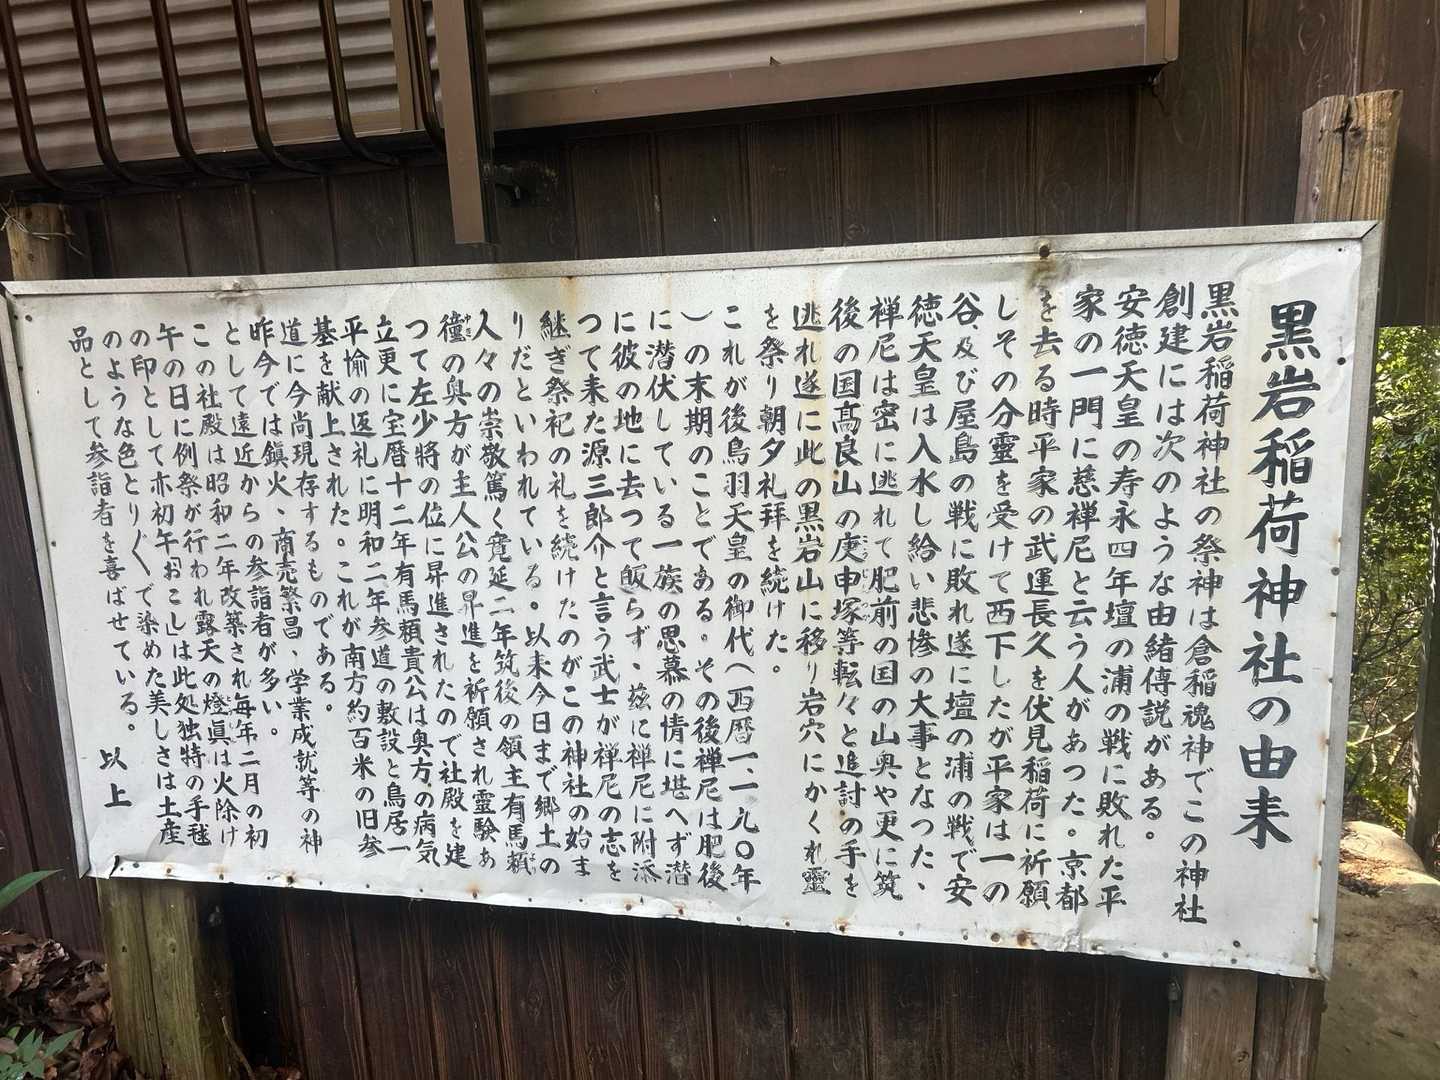 黒岩稲荷神社の由来
黒岩稲荷神社の祭神は倉稲魂神でこの神社
創建には次のような由緒傳説がある。
安徳天皇の寿永四年壇の浦の戦に敗れた平
家の一門に慈禅尼と云う人があった。京都
を去る時平家の武運長久を伏見稲荷に祈願
しその分靈を受けて西下したが平家は一の
谷、及び屋島の戦に敗れ遂に壇の浦の戦で安
徳天皇は入水し給い悲惨の大事となった、
禅尼は密に逃れて肥前の国の山奥や更に筑
後の国高良山の庚申塚等転々と追討の手を
逃れ遂に此の黒岩山に移り岩穴にかくれ靈
を祭り朝夕礼拝を続けた。
これが後鳥羽天皇の御代(西暦一、一九〇年
)の末期のことである。その後禅尼は肥後
に潜伏している一族の思慕の情に堪へず潜
に彼の地に去って皈らず、茲に禅尼に附添
つて来た源三郎介と言う武士が禅尼の志を
継ぎ祭祀の礼を続けたのがこの神社の始ま
りだといわれている。以来今日まで郷土の
人々の崇敬篤く寛延二年筑後の領主有馬頼
徸の奥方が主人公の昇進を祈願され靈驗あ
つて左少將の位に昇進されたので社殿を建
立更に宝暦十二年有馬頼貴公は奥方の病気
平愉の返礼に明和二年参道の敷設と鳥居一
基を献上された。これが南方約百米の旧参
道に今尚現存するものである。
昨今では鎮火、商売繁昌、学業成就等の神
として遠近からの参詣者が多い。
この社殿は昭和二年改築され毎年二月の初
午の日に例祭が行われ露天の燈眞は火除け
の印として亦初午「おこし」は此処独特の手毬
のような色とりぐで染めた美しさは土産
品として参詣者を喜ばせている。 以上